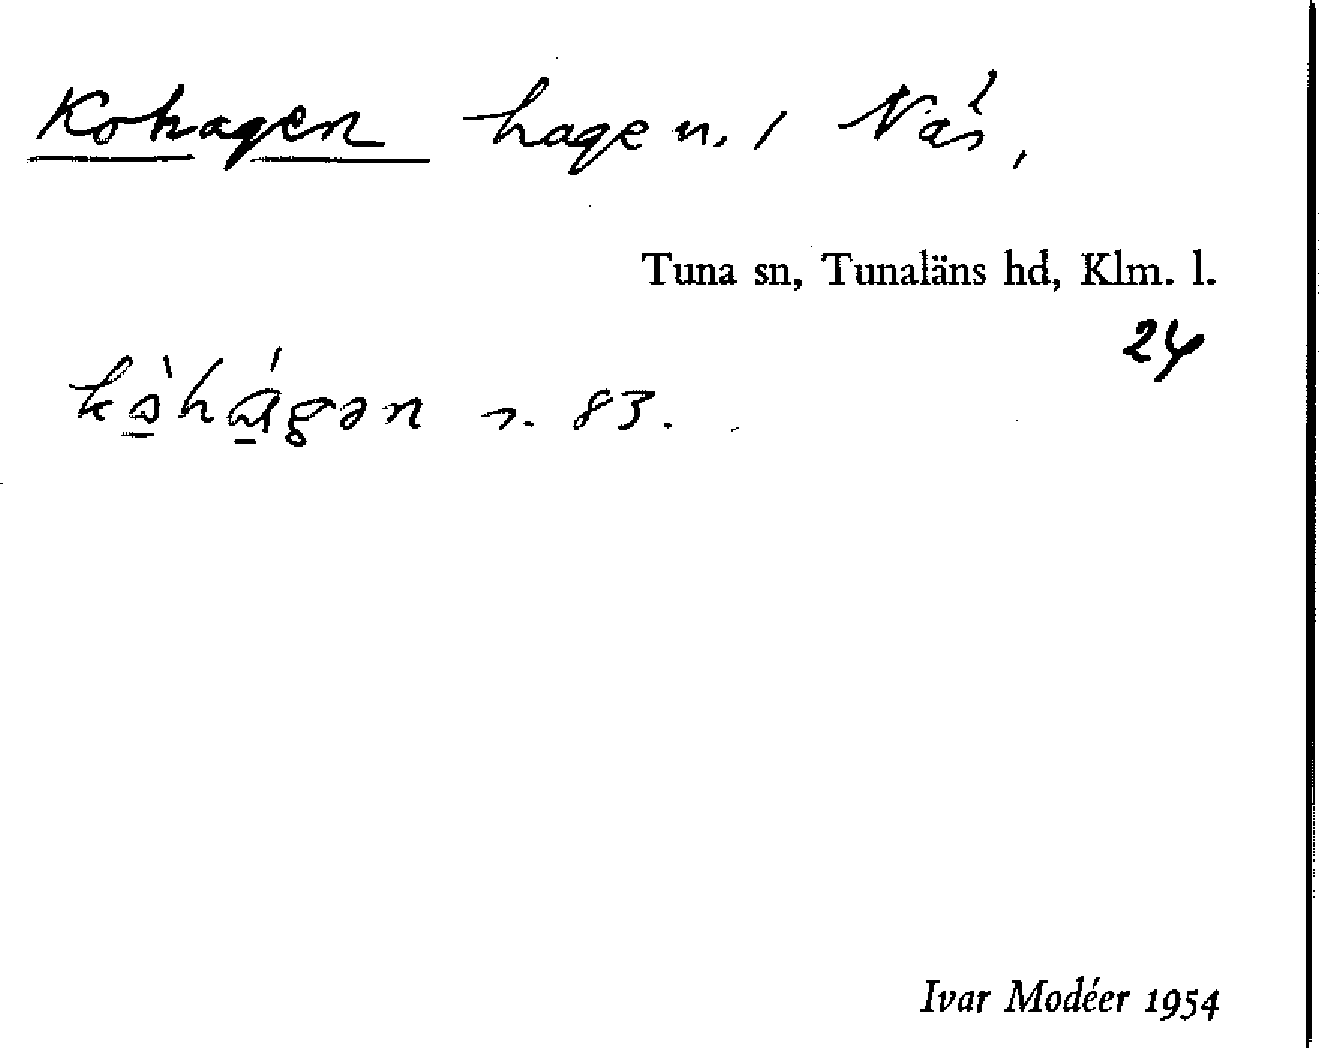 Kohagen hage n. / Näs,
Tuna sn, Tunaläns hd, Klm. l.
24
s. 83.
Ivar Modéer 1954